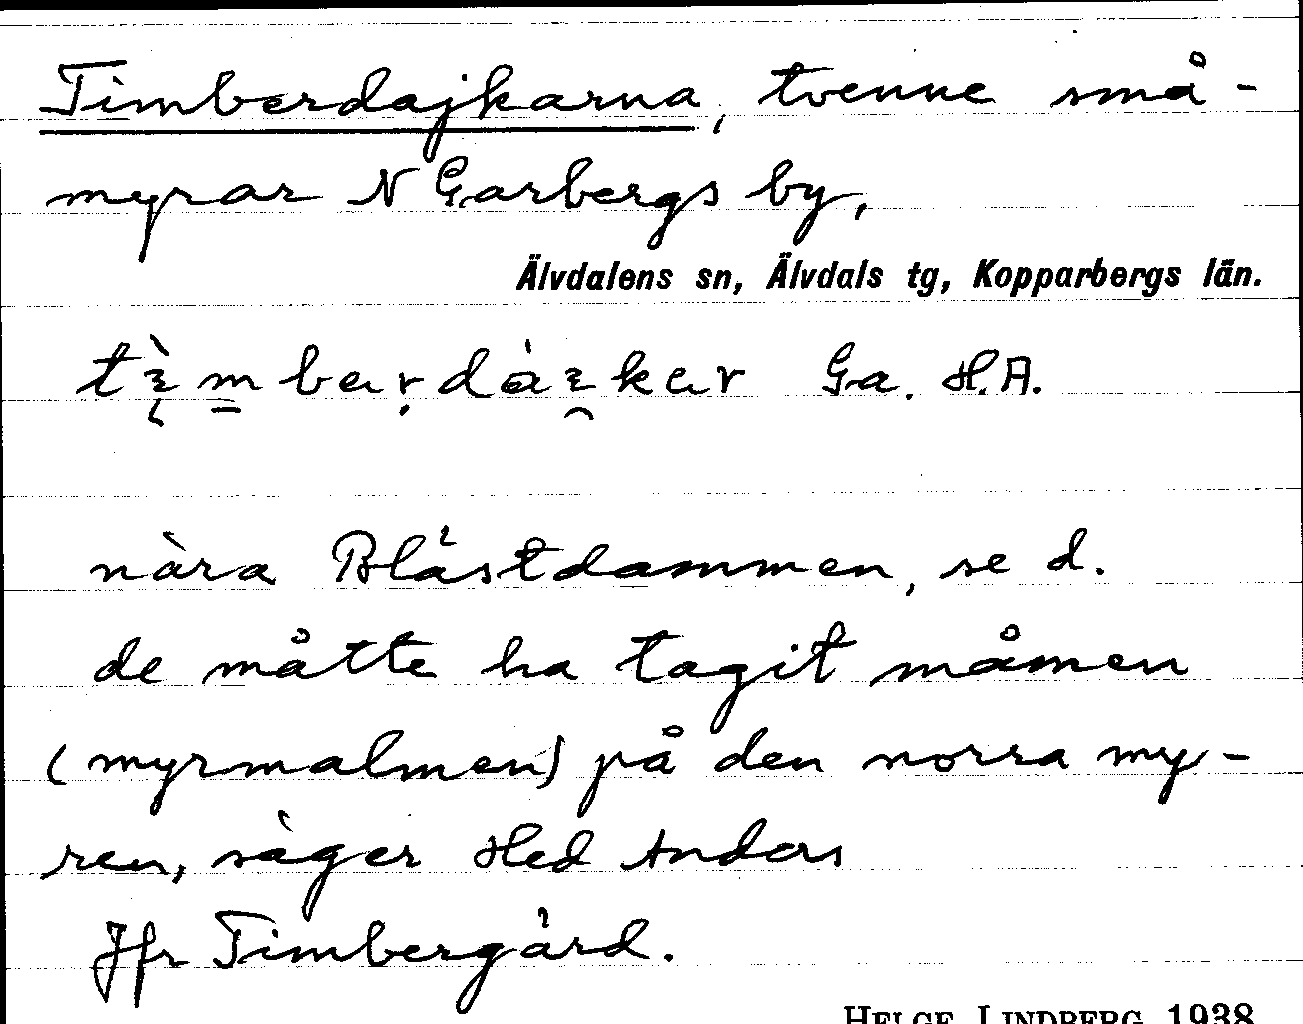 Timberdajkarna, tvenne små-
myrar N Garbergs by,
Älvdalens sn, Älvdals tg, Kopparbergs län.
Ga. H.A.
nära Blåstdammen, se d.
de måtte ha tagit måmen
(myrmalmen) på den norra my-
ren, säger Hed Anders
Jfr Timbergård.
HELGE LINDBERG 1938